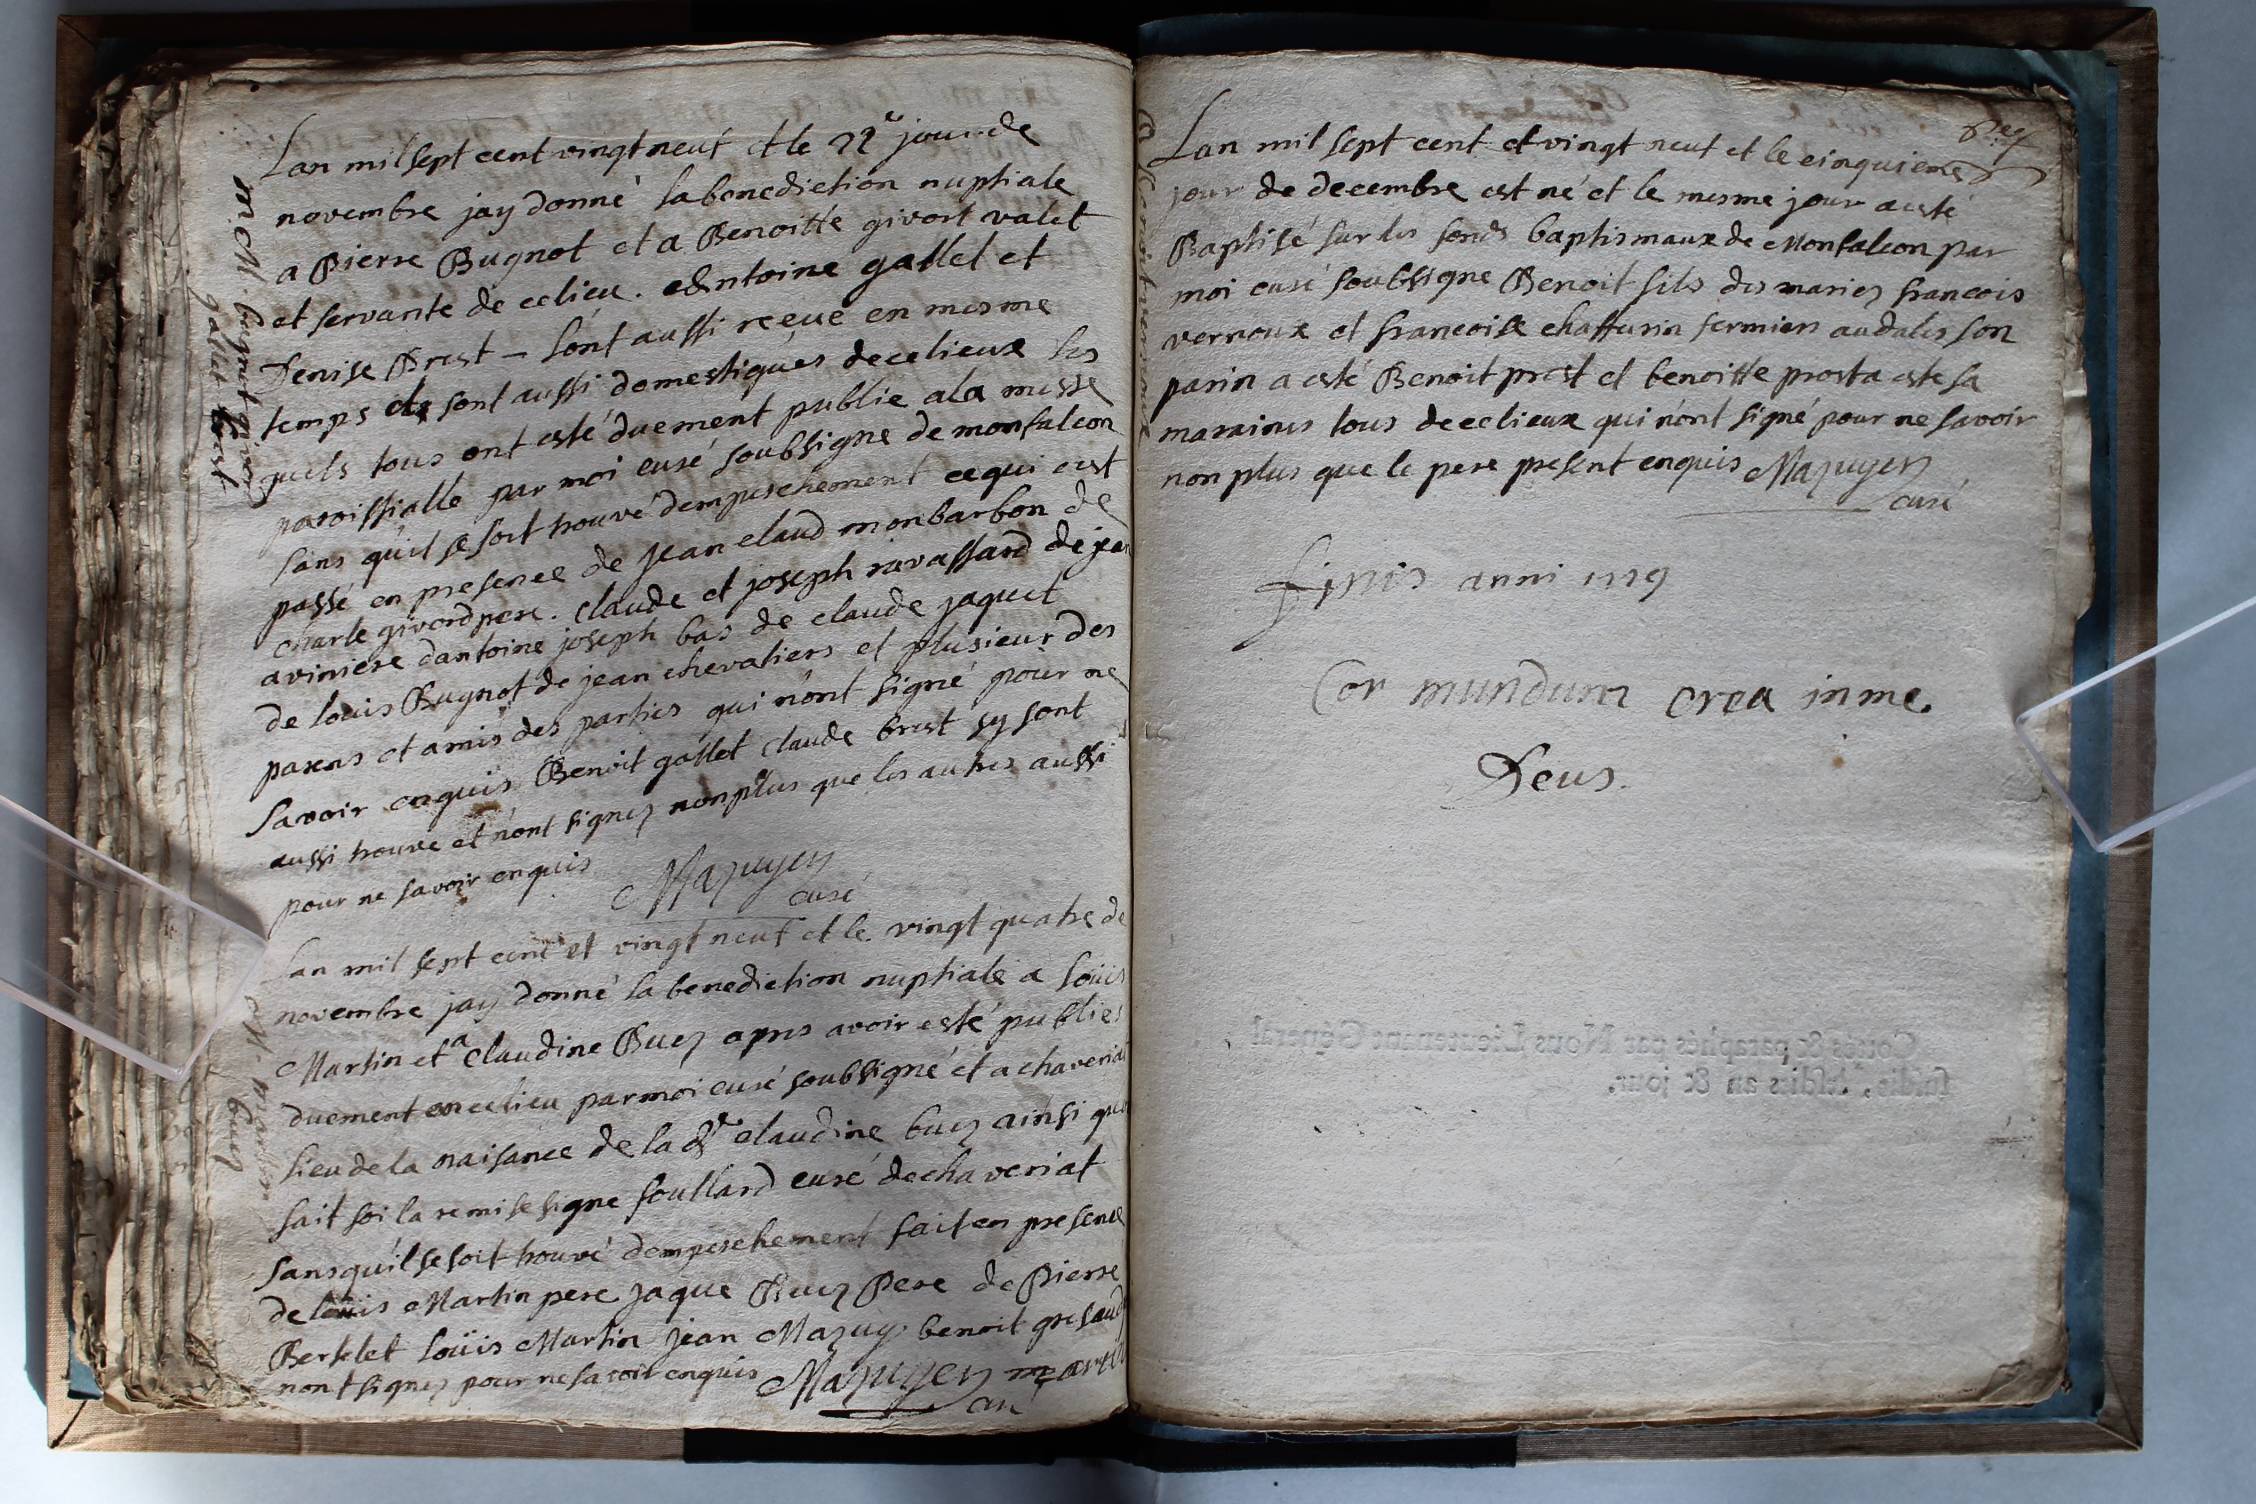 Lan mil sept cent vingt neuf et le 22e jour de
novembre jay donné la benediction nuptiale
a Pierre Bugnot et a Benoitte givort valet
et servante de ce lieu. Antoine gallet et
Denise Brest – lont aussi receue en mesme
temps et sont aussi domestiques de ce lieux les
quels tous ont esté duement publie a la messe
paroissialle par moi curé soubsigne de monfalcon
sans quil se soit trouvé dempeschement ce qui est
passé en presence de jean claud monbarbon de
charle givord pere. claude et joseph ravassard de jean
aviniere dantoine joseph bas de claude jaquet
de louis Bugnot de jean chevaliers et plusieur des
parens et amis des parties qui n'ont signé pour ne
savoir enquis Benoit gallet claude brest sy sont
aussi trouve et n'ont signez non plus que les autres aussi
pour ne savoir enquis
Mazuyer
curé
m. M. bugnot givord
gallet brest
Lan mil sept cent et vingt neuf et le vingt quatre de
novembre jay donné la benediction nuptiale a louis
Martin et a claudine Buez apres avoir esté publies
duement en ce lieu par moi curé soubsigné et a chaveriat
lieu de la naisance de la de claudine buez ainsi que
fait foi la remise signe foullard curé de chaveriat
sans quil se soit trouvé dempeschement fait en presence
de louis Martin pere jaque Buez Pere de Pierre
Bertelet louis Martin jean Mazuy benoit gresaud
nont signez pour ne savoir enquis Mazuyer martin
curé
M. martin
buez
Lan mil sept cent et vingt neuf et le cinquieme
jour de decembre est né et le mesme jour a esté
Baptisé sur les fonds baptismaux de Monfalcon par
moi curé soubsigne Benoit fils des mariez francois
vernoux et francoise chaffurin fermiers audales son
parin a esté Benoit prost et benoitte prost a este sa
maraines tous de ce lieux qui n'ont signé pour ne savoir
non plus que le pere present enquis Mazuyer
curé
B. Benoit vernoux
finis anni 1729
Cor mundum crea in me.
Deus.